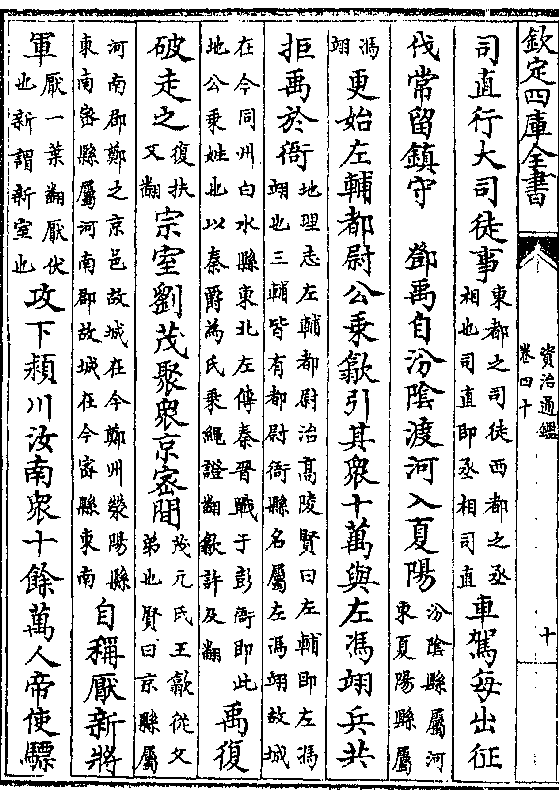 欽定四庫全書
資治通鑑
卷四十
十
司直行大司徒事東都之司徒西都之丞相也司直即丞相司直車駕每出征
伐常留鎮守　鄧禹自汾陰渡河入夏陽汾陰縣屬河東夏陽縣屬
馮翊更始左輔都尉公乘歙引其衆十萬與左馮翊兵共
拒禹於衙地理志左輔都尉治高陵賢曰左輔即左馮翊也三輔皆有都尉衙縣名屬左馮翊故城
在今同州白水縣東北左傳秦晉戰于彭衙即此地公乘姓也以秦爵為氏乘繩證翻歙許及翻禹復
破走之復扶又翻宗室劉茂聚衆京密間茂元氏王歙從父弟也賢曰京縣屬
河南郡鄭之京邑故城在今鄭州滎陽縣東南密縣屬河南郡故城在今密縣東南自稱厭新將
軍厭一葉翻厭伏也新謂新室也攻下潁川汝南衆十餘萬人帝使驃